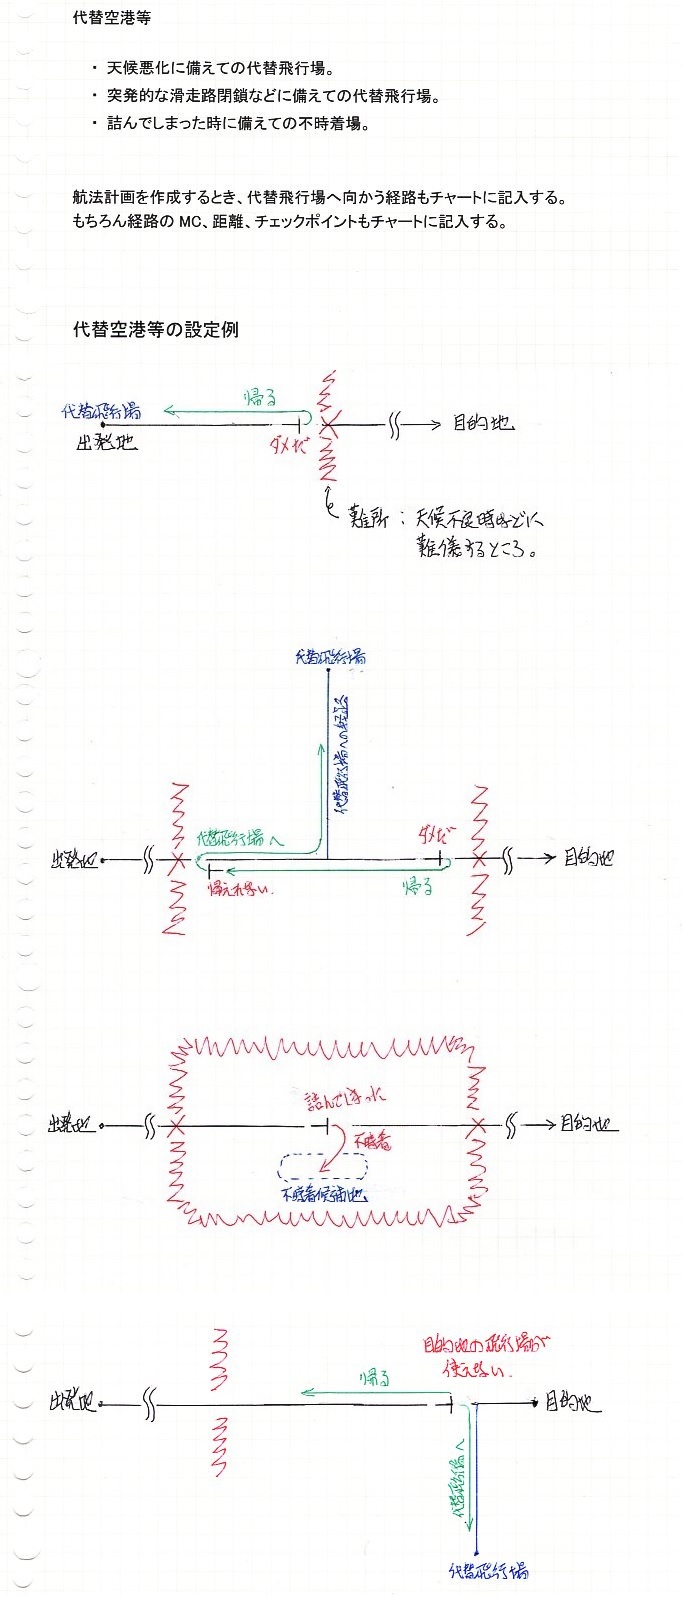 代替空港等
・ 天候悪化に備えての代替飛行場。
・ 突発的な滑走路閉鎖などに備えての代替飛行場。
・ 詰んでしまった時に備えての不時着場。
航法計画を作成するとき、代替飛行場へ向かう経路もチャートに記入する。
もちろん経路の MC、距離、チェックポイントもチャートに記入する。
代替空港等の設定例
帰る
代替飛行場
出発地
ダメだ
目的地
難所:天候不良時などに
難儀するところ。
代替飛行場
代替飛行場への経路
代替飛行場へ
ダメだ
出発地
目的地
帰えれない.
帰る
詰んでしまった
出発地
目的地
不時着
不時着候補地
目的地の飛行場が
使えない.
帰る
出発地
目的地
代替飛行場へ
代替飛行場